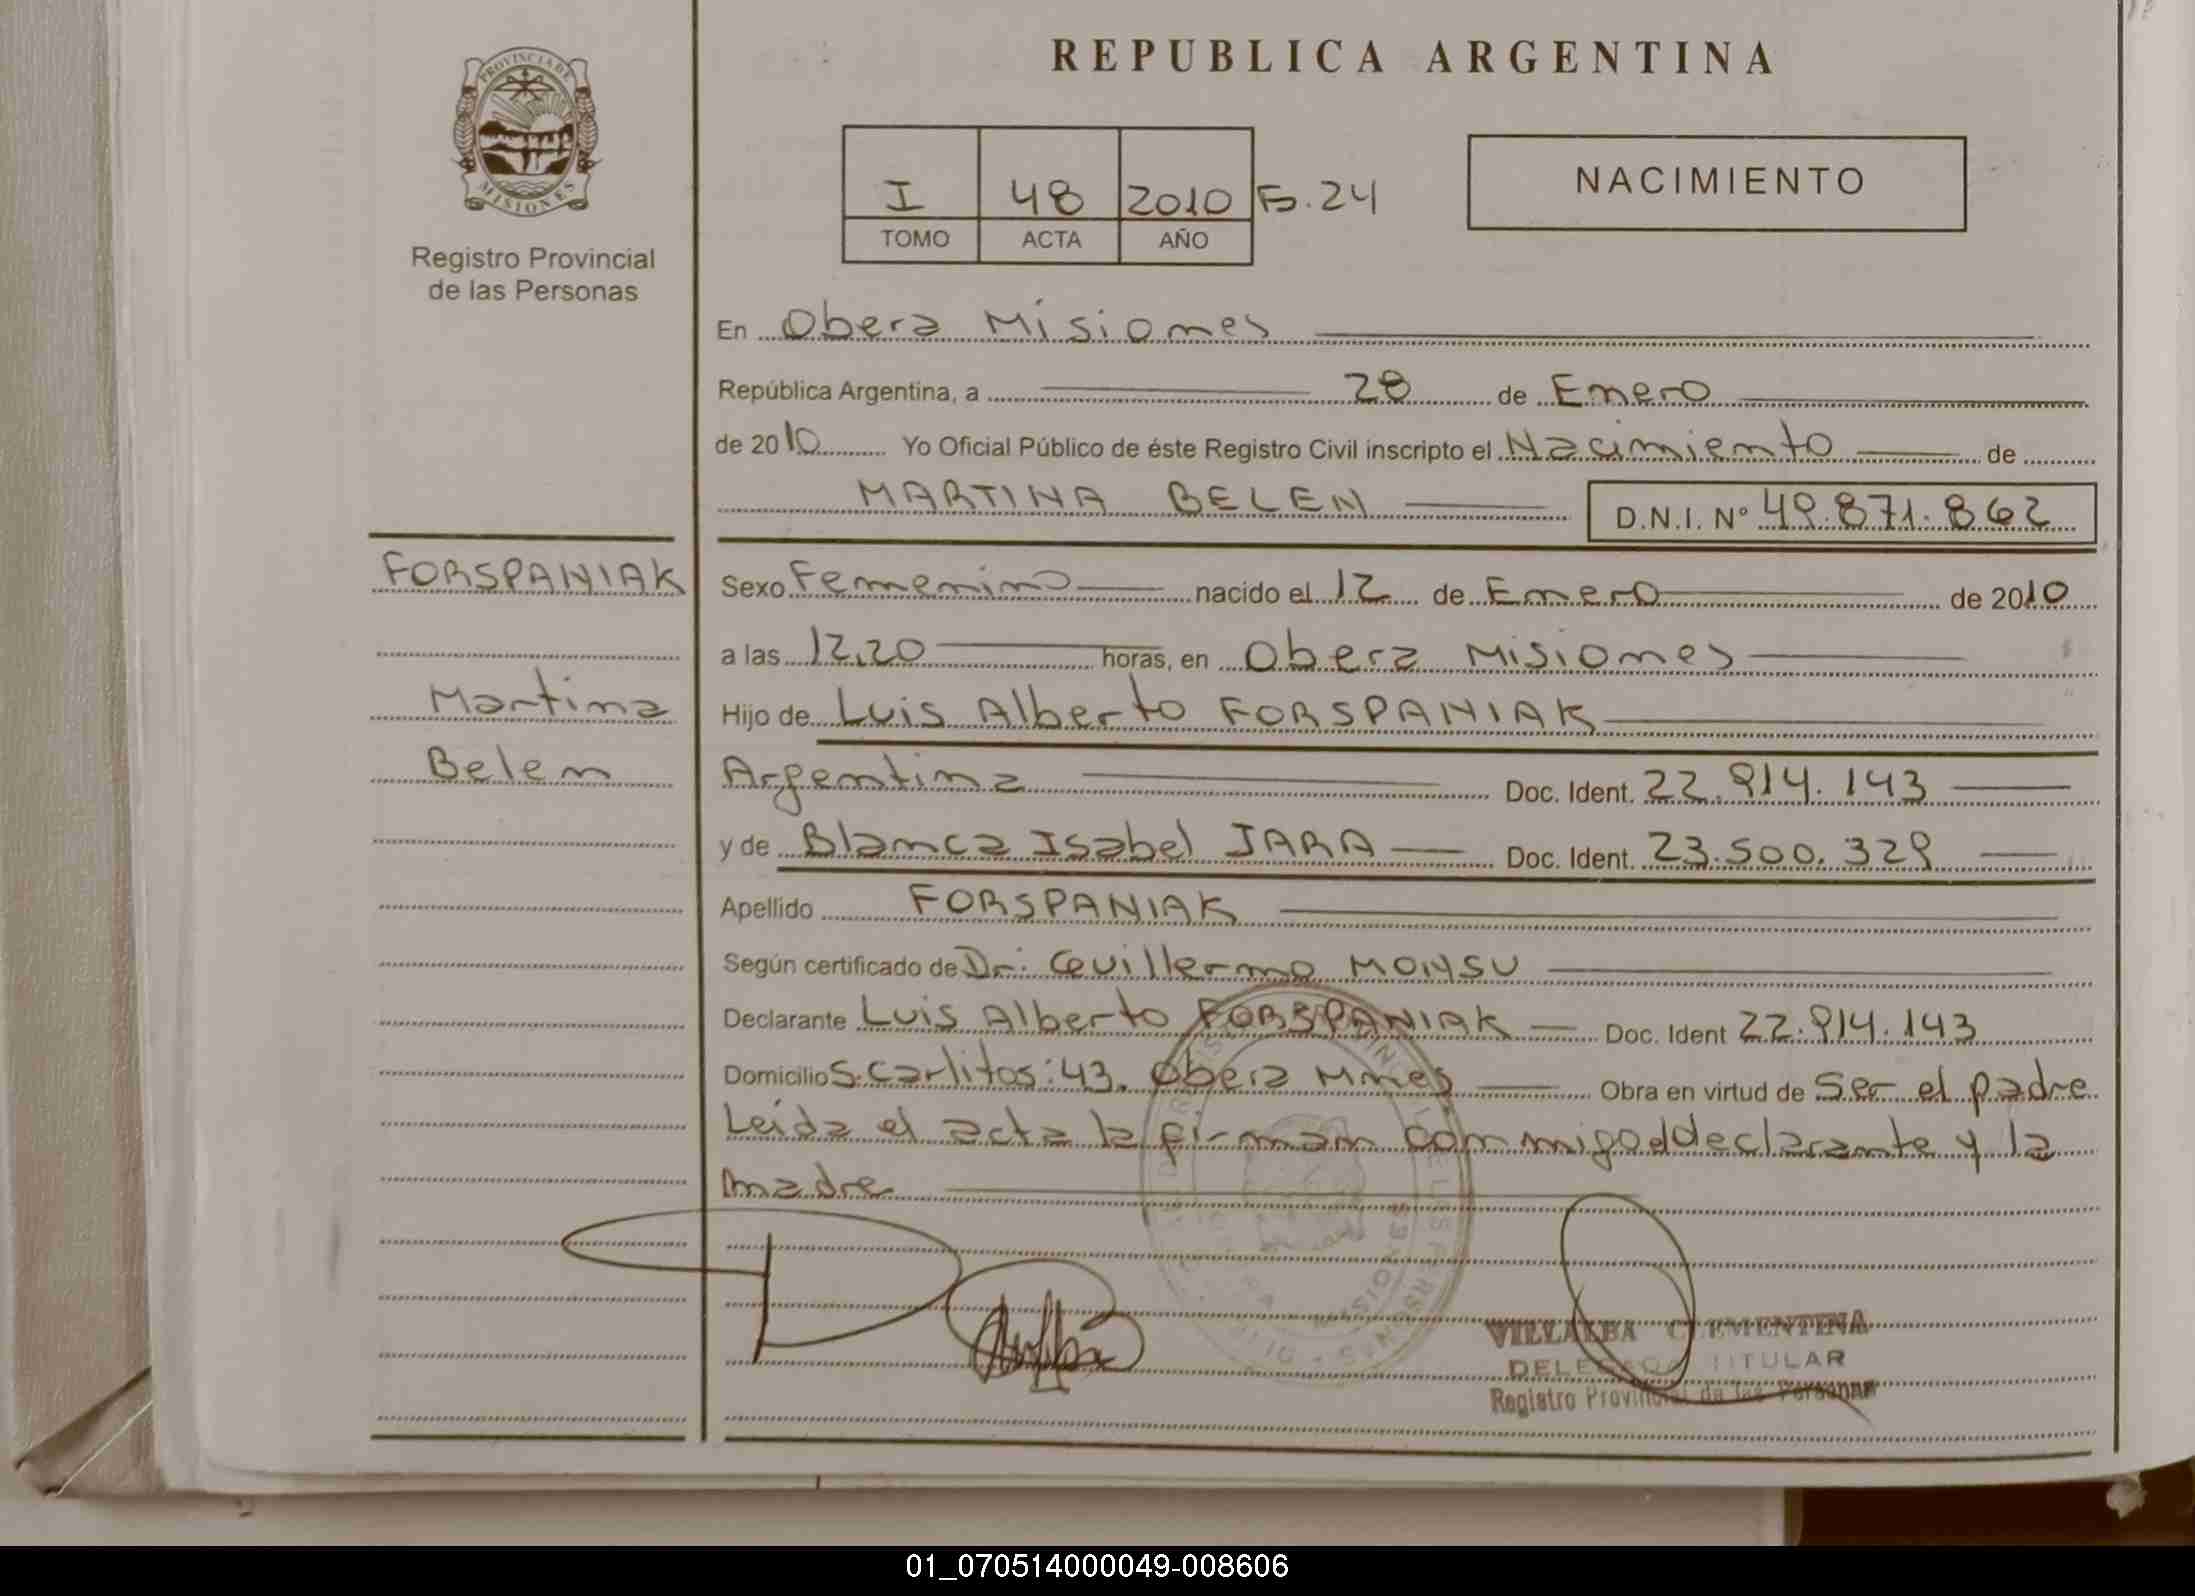 PROVINCIA DE
MISIONES
Registro Provincial
de las Personas
REPUBLICA ARGENTINA
I 48 2010 Fo. 24
TOMO ACTA AÑO
NACIMIENTO
En Obera Misiones
República Argentina, a 28 de Enero
de 2010 Yo Oficial Público de éste Registro Civil inscripto el Nacimiento de
MARTINA BELEN D.N.I. N° 49.871.862
FORSPANIAK
Martina
Belen
Sexo Femenino nacido el 12 de Enero de 2010
a las 12,20 horas, en Obera Misiones
Hijo de Luis Alberto FORSPANIAK
Argentina Doc. Ident. 22.914.143
y de Blanca Isabel JARA Doc. Ident. 23.500.329
Apellido FORSPANIAK
Según certificado de Dr. Guillermo MONSU
Declarante Luis Alberto FORSPANIAK Doc. Ident 22.914.143
Domicilio S. Carlitos: 43. Obera Mnes Obra en virtud de Ser el padre
Leida el acta la firman conmigo el declarante y la
madre
VILLALBA CLEMENTINA
DELEGADA TITULAR
Registro Provincial de las Personas
01_070514000049-008606